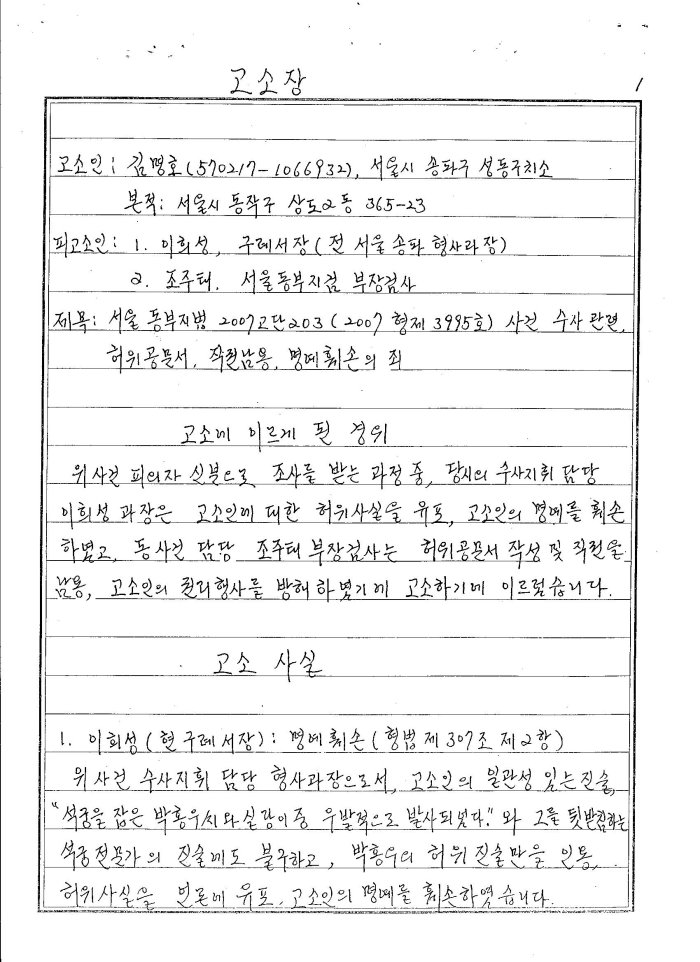 고소장
1
고소인: 김명호(570217-1066932), 서울시 송파구 성동구치소
본적: 서울시 동작구 상도2동 365-23
피고소인: 1. 이희성, 구례서장(전 서울송파 형사과장)
2. 조주태, 서울동부지검 부장검사
제목: 서울 동부지법 2007고단203(2007 형제 3995호) 사건 수사 관련,
허위공문서, 직권남용, 명예훼손의 죄
고소에 이르게 된 경위
위사건 피의자 신분으로 조사를 받는 과정 중, 당시의 수사지휘 담당
이희성 과장은 고소인에 대한 허위사실을 유포, 고소인의 명예를 훼손
하였고, 동사건 담당 조주태 부장검사는 허위공문서 작성 및 직권을
남용, 고소인의 권리행사를 방해하였기에 고소하기에 이르렀습니다.
고소 사실
1. 이희성(현 구례서장): 명예훼손(형법 제307조 제2항)
위사건 수사지휘 담당 형사과장으로서, 고소인의 일관성 있는 진술,
"석궁을 잡은 박홍우씨와 실랑이중 우발적으로 발사되었다."와 그를 뒷받침하는
석궁전문가의 진술에도 불구하고, 박홍우의 허위 진술만을 인용,
허위사실을 언론에 유포, 고소인의 명예를 훼손하였습니다.